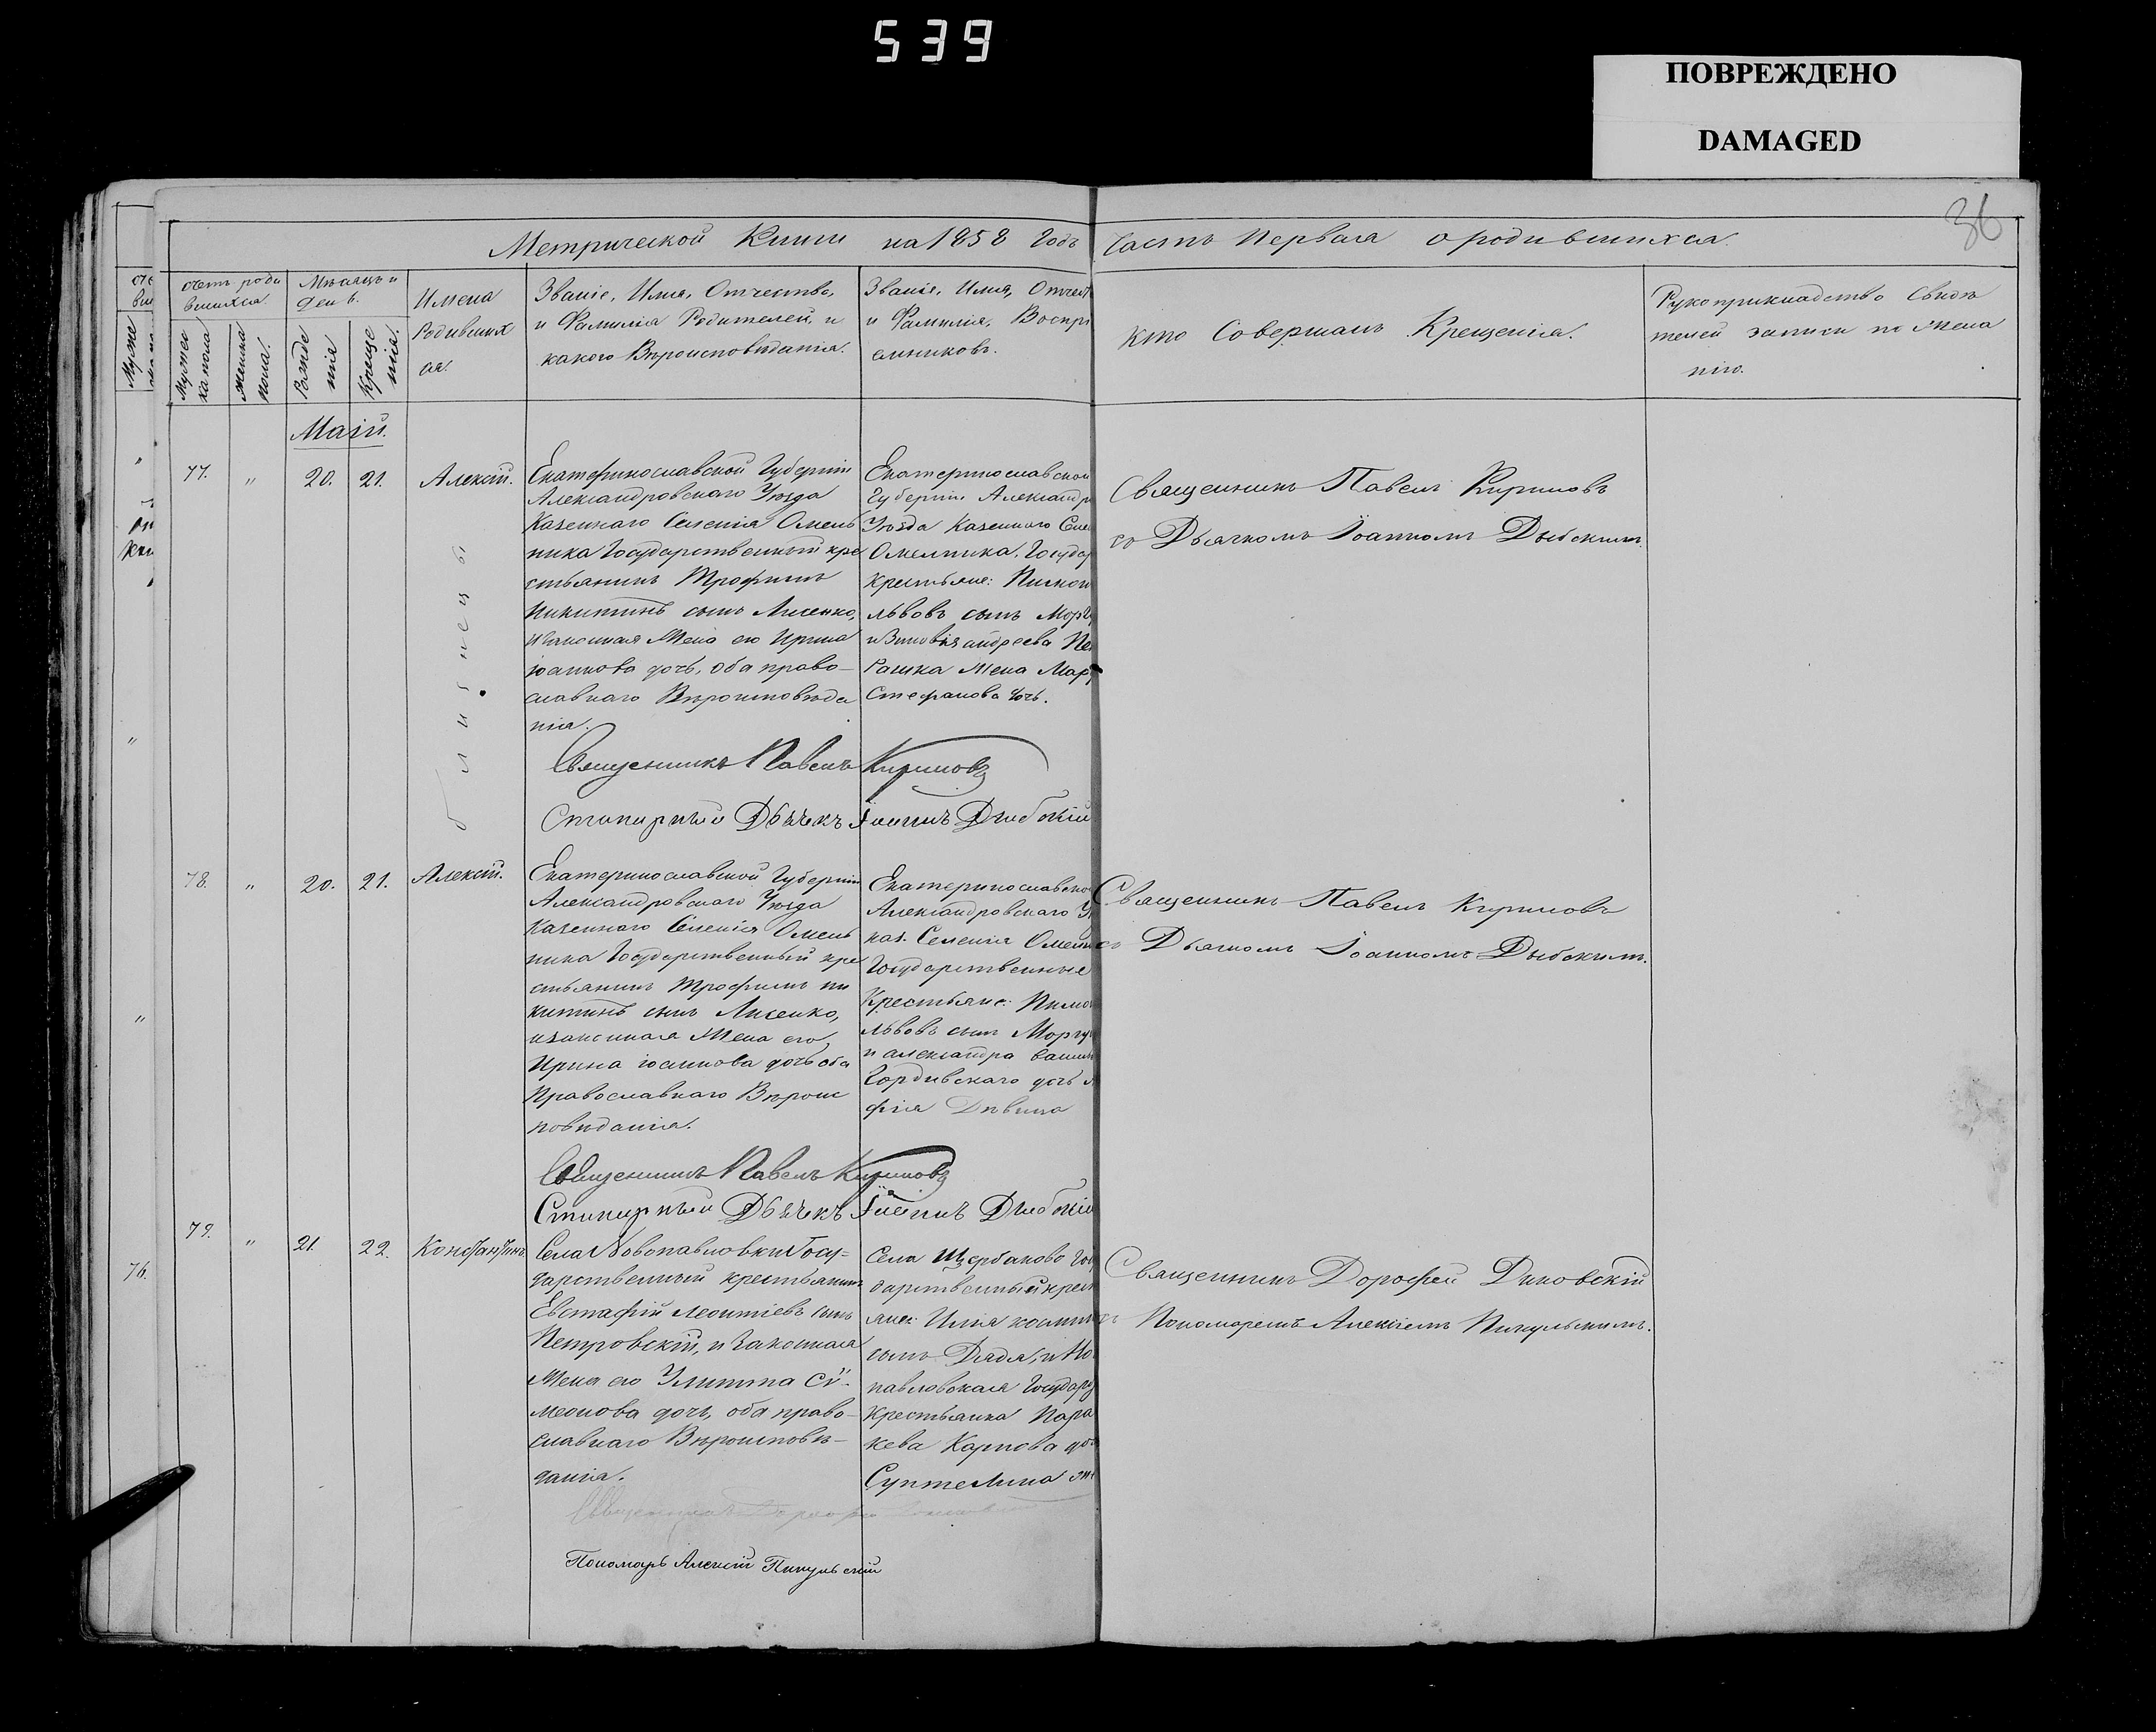 539
ПОВРЕЖДЕНО
DAMAGED
36
Метрической Книги на 1858 Годъ Часть Первая о родившихся.
счетъ роди
вшихся.
Мужес
ка пола.
Женска
пола.
Мѣсяцъ и
день.
Рожде
нія
Креще
нія.
Имена
Родивших
ся.
Званіе, Имя, Отчество,
и Фамилія Родителей, и
какого Вѣроисповѣданія.
Званіе, Имя, Отчест
и Фамилія, Воспрі
емниковъ.
Кто Совершалъ Крещенія.
Рукоприкладство Свидѣ
телей записи по Жела
нію.
Маій.
77. " 20. 21. Алексій.
близнецы
Екатеринославской Губерніи
Александровскаго Уѣзда
Казеннаго Селенія Омель
ника Государственный кре
стьянинъ Трофимъ
Никитинъ сынъ Лисенко,
и законная Жена его Ирина
Іоаннова дочь, оба право-
славнаго Вѣроисповѣда
нія.
Екатеринославской
Губерніи Александр
Уѣзда Казеннаго Селе
Омелника. Государ
крестьяне:
Львовъ сынъ
и Зиновія Андреева
Жена
Стефанова дочь.
Священникъ Павелъ Кириловъ
со Дьячкомъ Іоанномъ
Священникъ Павелъ Кириловъ
Дьячекъ Іоаннъ
78. " 20. 21. Алексій.
Екатеринославской Губерніи
Александровскаго Уѣзда
Казеннаго Селенія Омель
ника Государственный кре
стьянинъ Трофимъ Ни
китинъ сынъ Лисенко,
и законная Жена его,
Ирина Іоаннова дочь оба
Православнаго Вѣроис
повѣданія.
Екатеринославско
Александровскаго У
каз. Селенія Омель
Государственные
Крестьяне:
Львовъ сынъ
и Александра
Гордѣевскаго дочь
фія Дѣвица
Священникъ Павелъ Кириловъ
съ Дьячкомъ Іоанномъ
Священникъ Павелъ Кириловъ
Дьячекъ Іоаннъ
79. " 21. 22. Константинъ.
Села Новопавловки Госу-
дарственный крестьянинъ
Евстафій Леонтіевъ сынъ
Петровскій, и законная
Жена его Улитта Сѵ-
меонова дочь, оба право-
славнаго Вѣроисповѣ-
данія.
Села Щербаково Госу
дарственный крест
яне: Илія
сынъ Дядя, и Но
павловская Государ
Крестьянка Пара
кева Карпова до
Священникъ Дорофей
съ Пономаремъ Алексіемъ Пикульскимъ.
Пономарь Алексій Пикульскій
76.